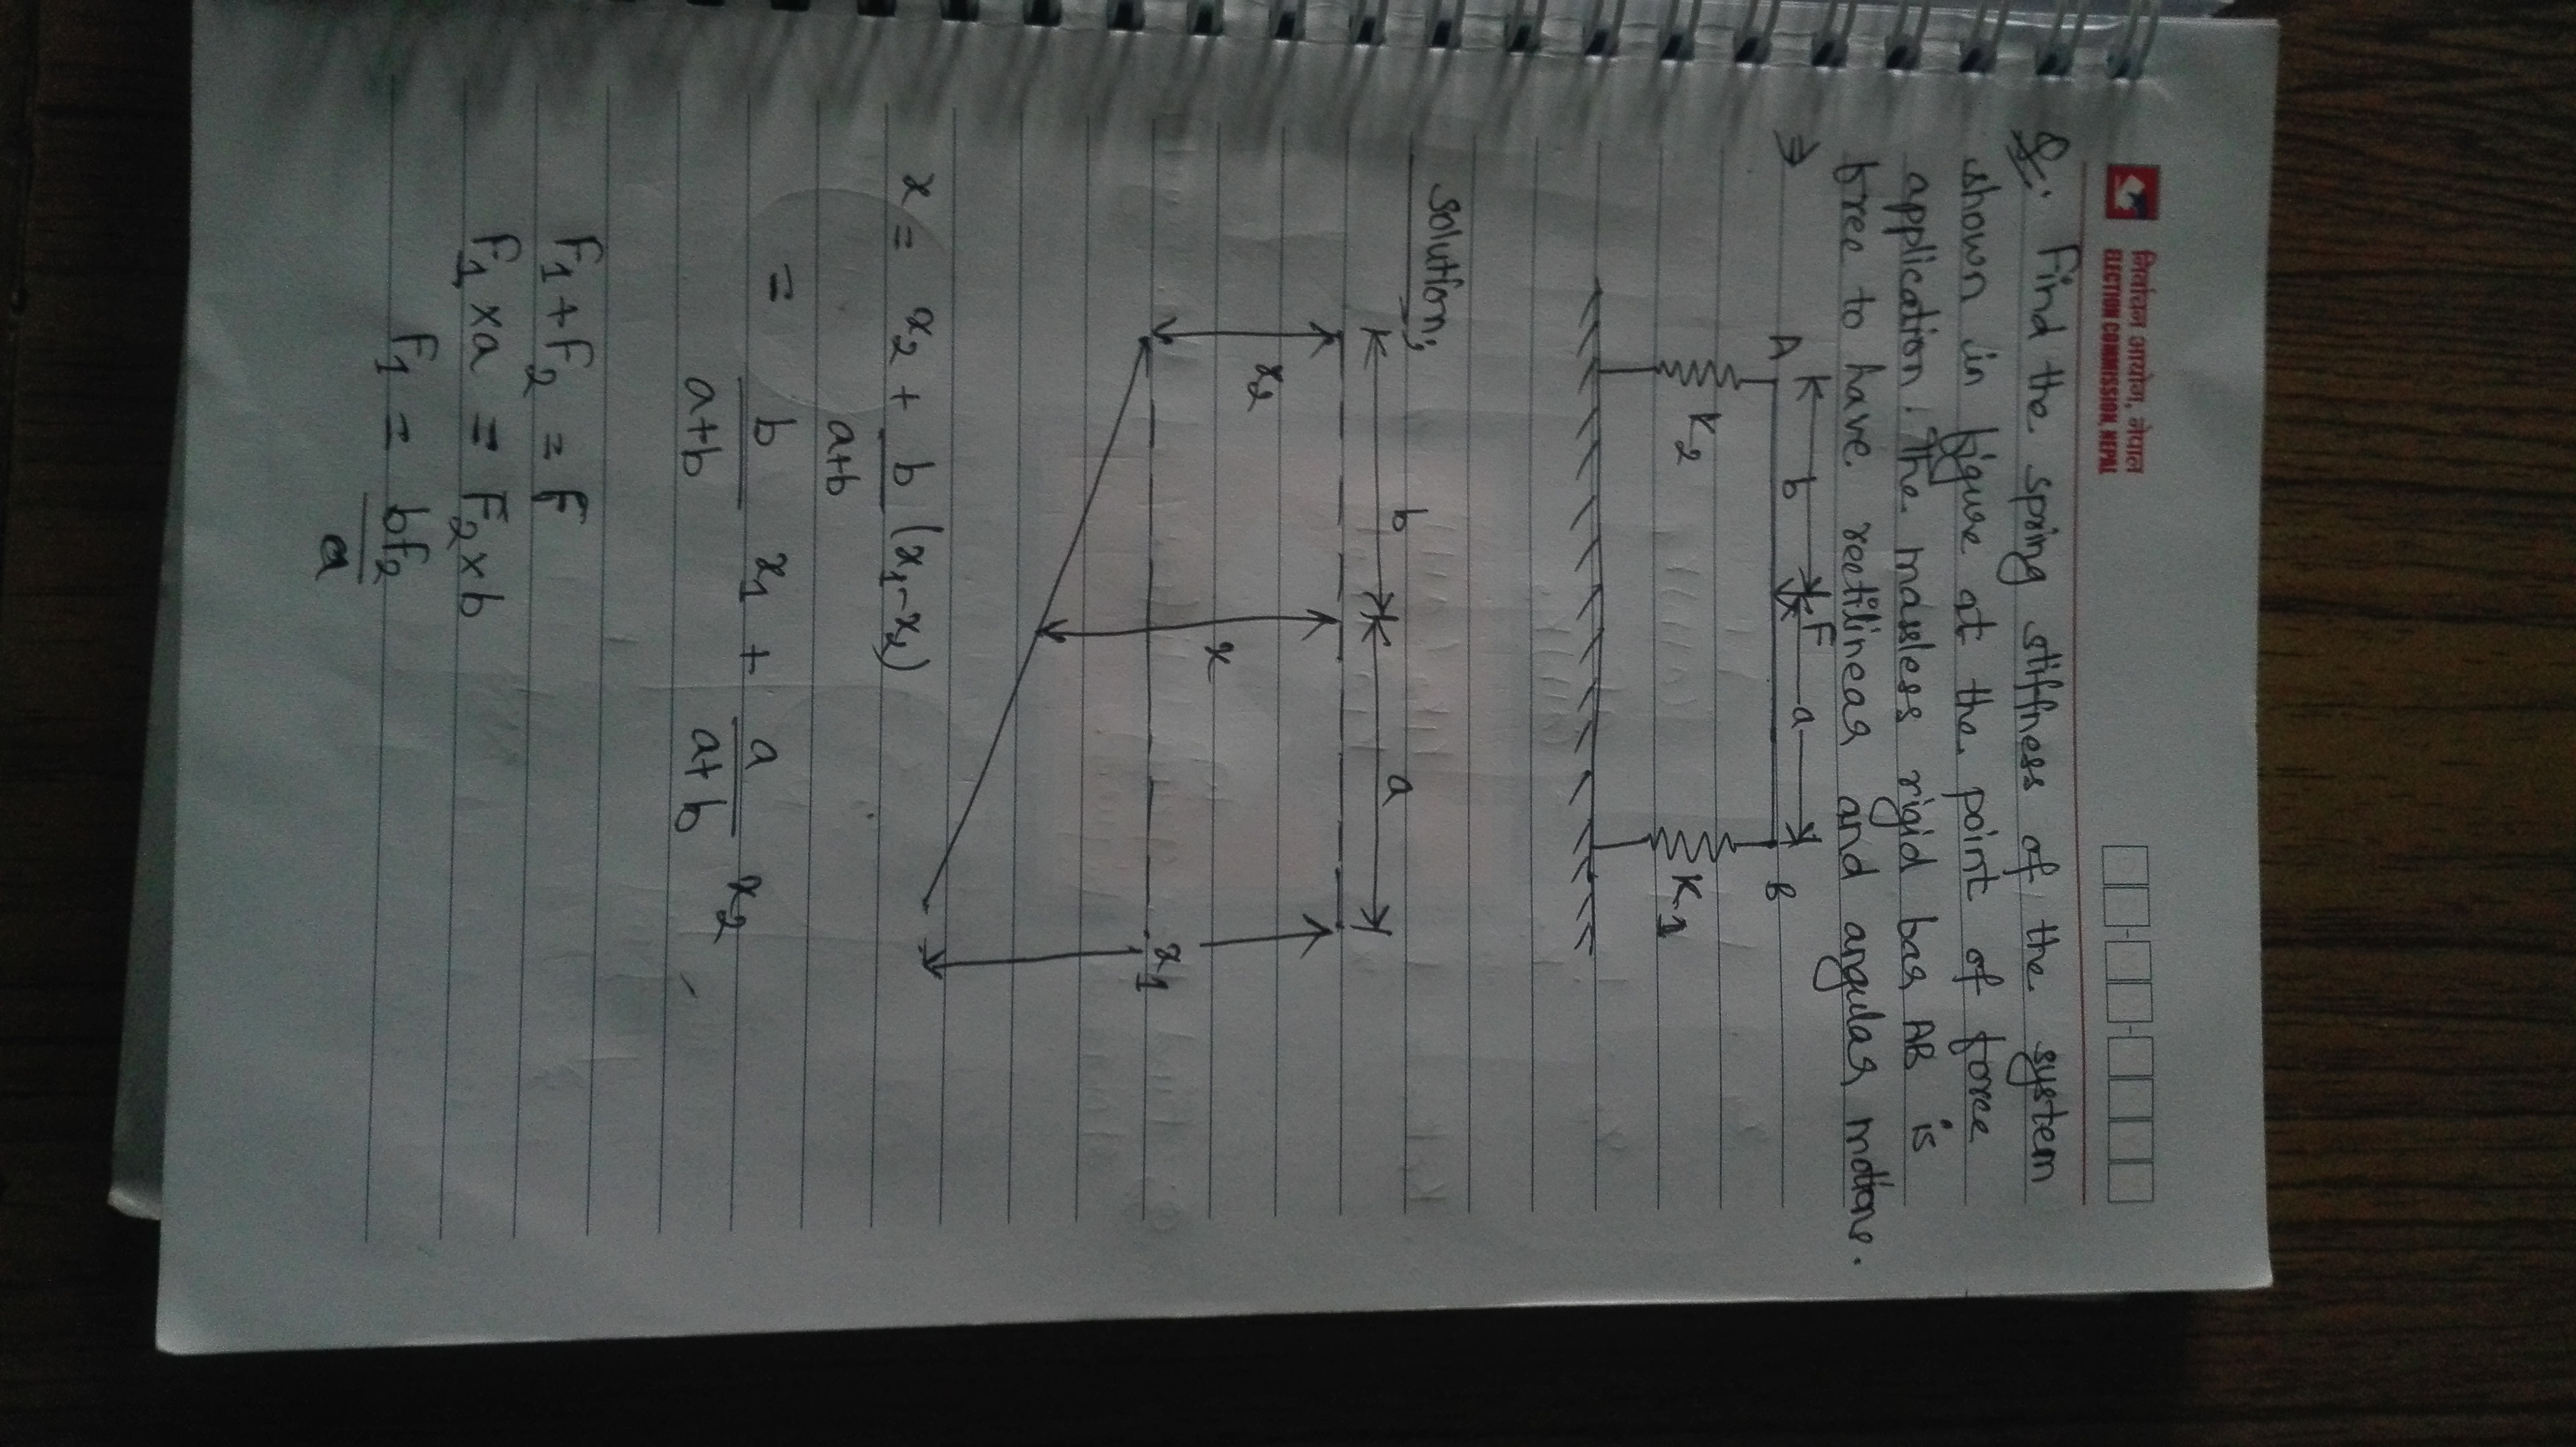 निर्वाचन आयोग, नेपाल
ELECTION COMMISSION, NEPAL
Q. Find the spring stiffness of the system
shown in figure at the point of force
application. The massless rigid bar AB is
free to have rectilinear and angular motions.
⇒
b F a
A B
K2 K1
Solution;
b a
x2 x x1
x = x2 + b/a+b (x1-x2)
= b/a+b x1 + a/a+b x2
F1+F2 = F
F1 x a = F2 x b
F1 = bF2/a